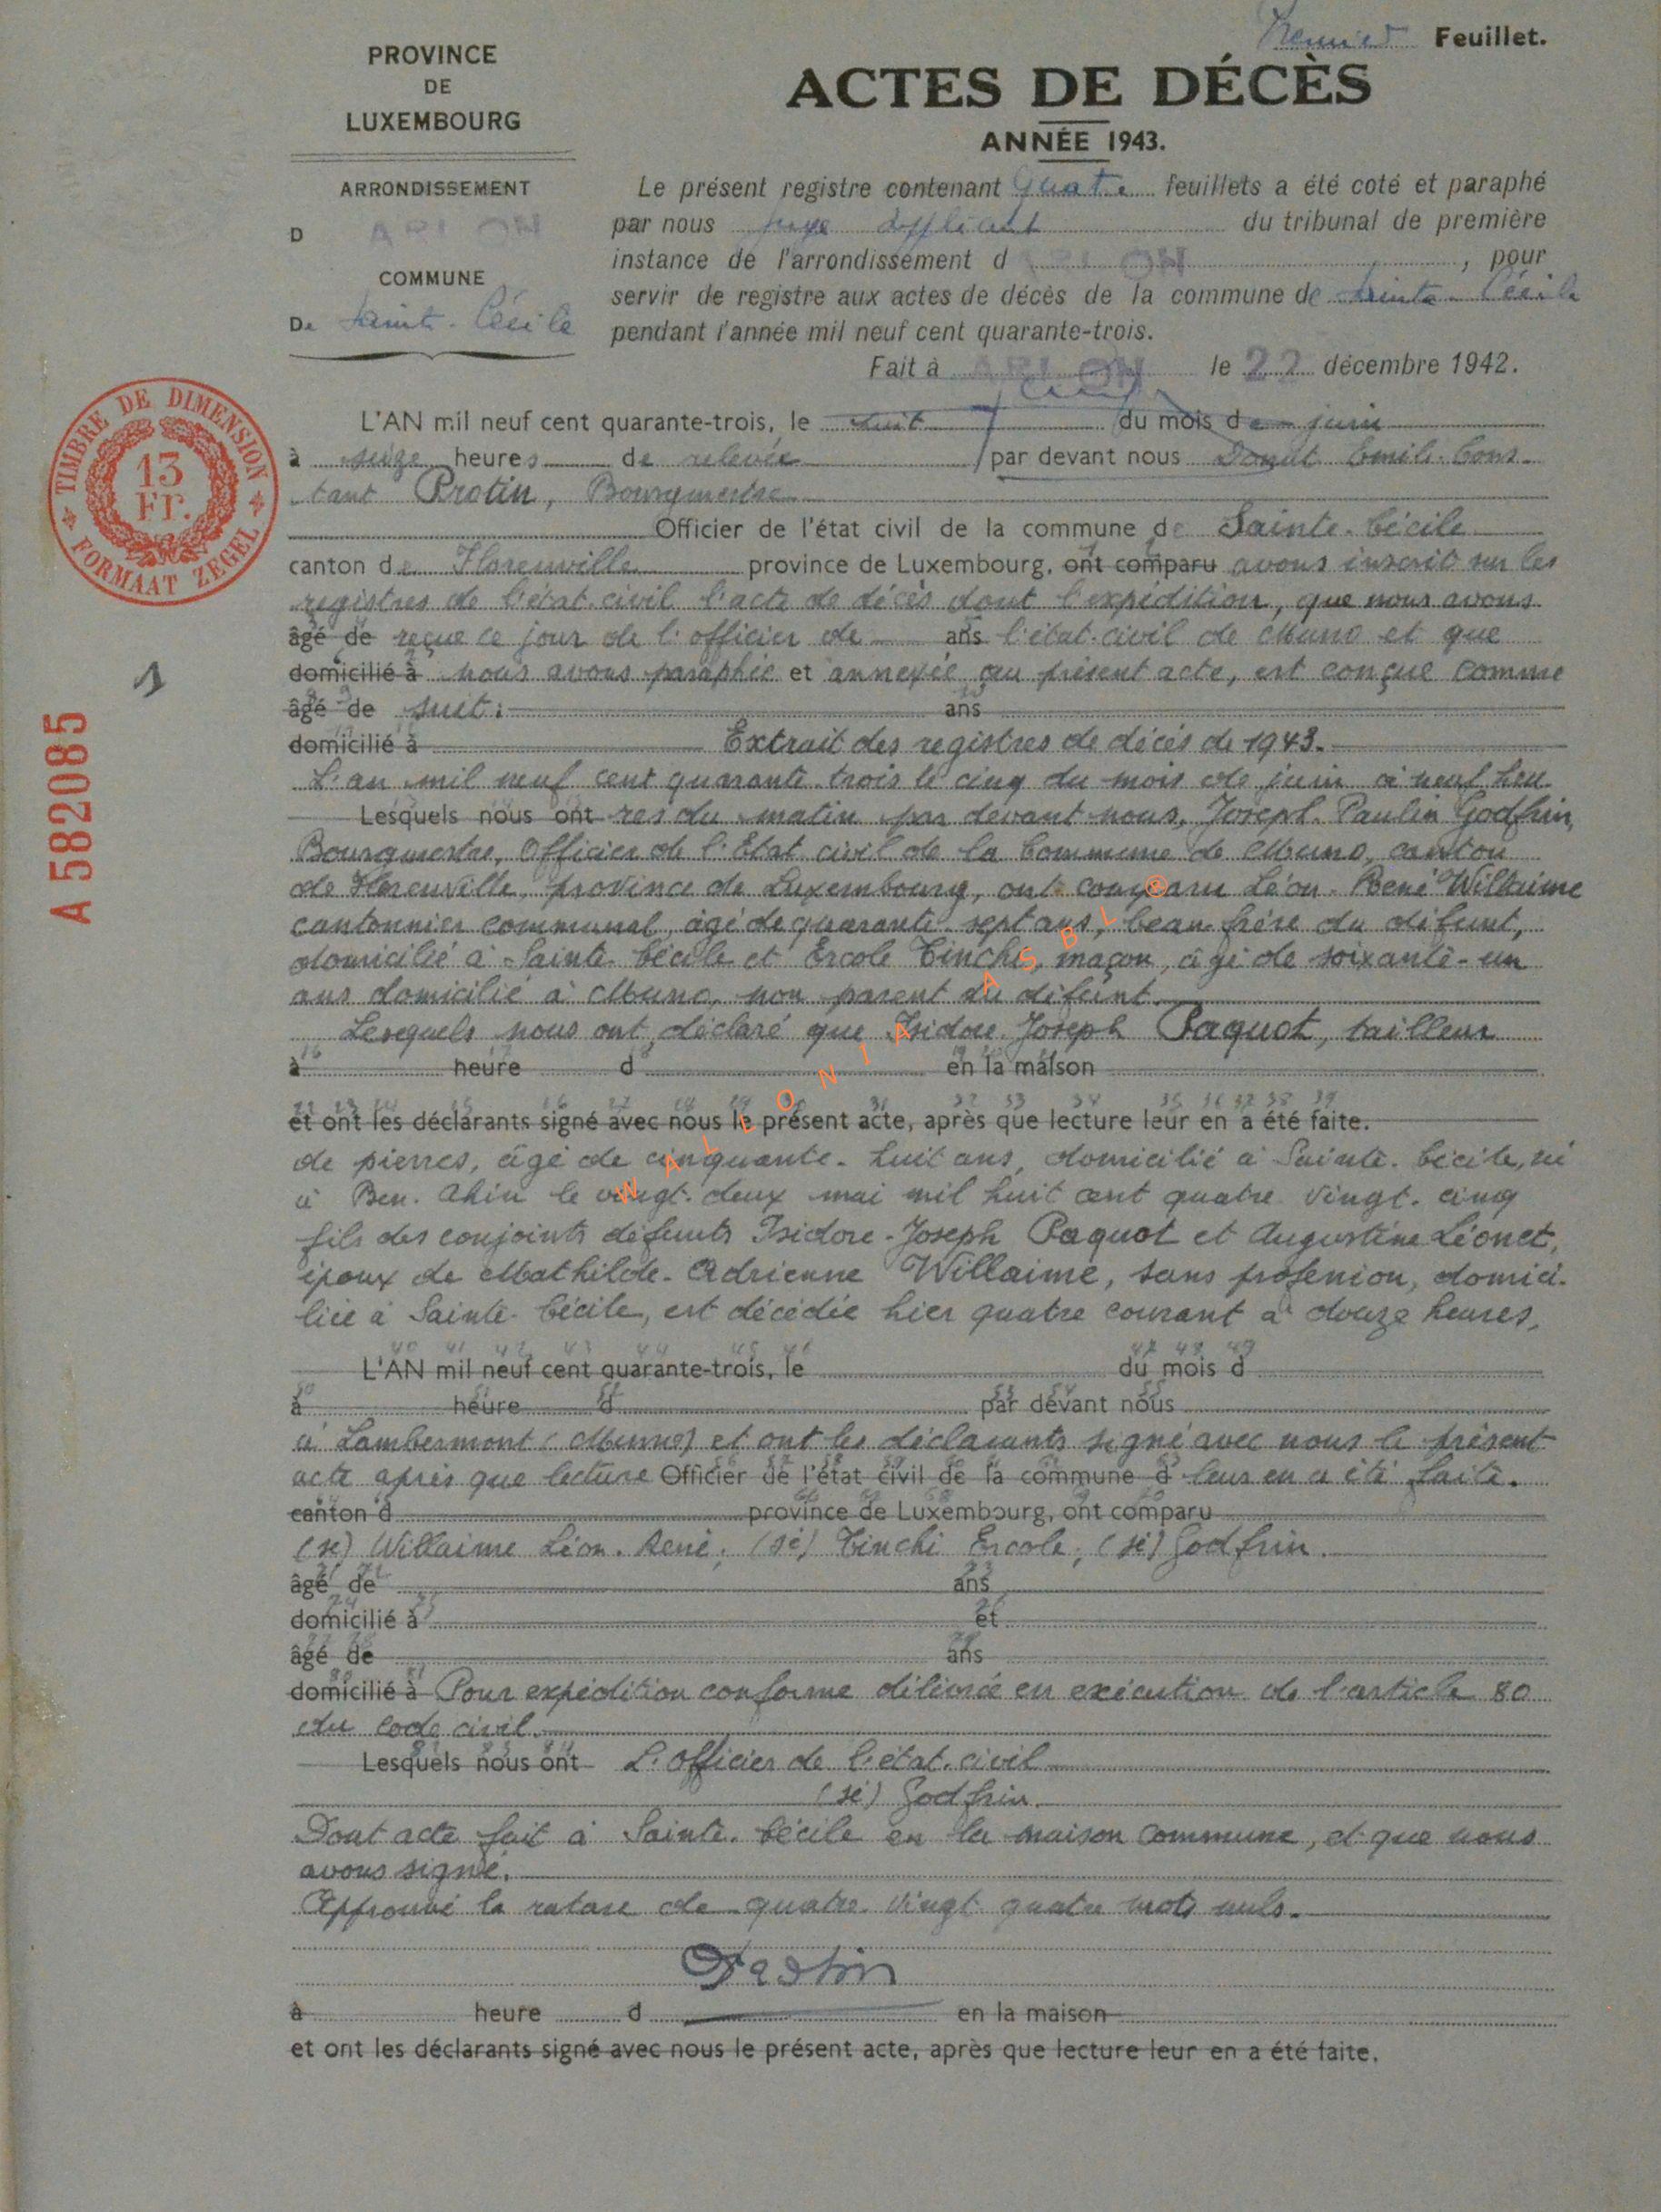 Premier Feuillet.
PROVINCE
DE
LUXEMBOURG
ARRONDISSEMENT
D ARLON
COMMUNE
De Sainte-Cécile
ACTES DE DÉCÈS
ANNÉE 1943.
Le présent registre contenant quatre feuillets a été coté et paraphé
par nous juge du tribunal de première
instance de l'arrondissement d ARLON, pour
servir de registre aux actes de décès de la commune de Sainte-Cécile
pendant l'année mil neuf cent quarante-trois.
Fait à ARLON le 22 décembre 1942.
TIMBRE DE DIMENSION
13
Fr.
FORMAAT ZEGEL
1
A 582085
L'AN mil neuf cent quarante-trois, le huit du mois de juin
à seize heures de relevée par devant nous Donat Emile Cons-
tant Protin, Bourgmestre
Officier de l'état civil de la commune de Sainte-Cécile
canton de Florenville province de Luxembourg, ont comparu avons inscrit sur les
registres de l'état-civil l'acte de décès dont l'expédition, que nous avons
âgé de reçue ce jour de l'officier de ans l'état-civil de Muno et que
domicilié à nous avons paraphée et annexée au présent acte, est conçue comme
âgé de suit: ans
domicilié à Extrait des registres de décès de 1943.
L'an mil neuf cent quarante-trois le cinq du mois de juin à neuf heu-
Lesquels nous ont res du matin par devant nous, Joseph Paulin Godfrin,
Bourgmestre, Officier de l'Etat civil de la Commune de Muno, canton
de Florenville, province de Luxembourg, ont comparu Léon-René Willaime
cantonnier communal, âgé de quarante-sept ans, beau-frère du défunt,
domicilié à Sainte-Cécile et Ercole Tinchi, maçon, âgé de soixante-un
ans domicilié à Muno, non parent du défunt.
Lesquels nous ont déclaré que Isidore Joseph Paquot, tailleur
à heure d en la maison
et ont les déclarants signé avec nous le présent acte, après que lecture leur en a été faite.
de pierres, âgé de cinquante-huit ans, domicilié à Sainte-Cécile, né
à Ben-Ahin le vingt-deux mai mil huit cent quatre-vingt-cinq
fils des conjoints défunts Isidore-Joseph Paquot et Augustine Léonet,
époux de Mathilde-Adrienne Willaime, sans profession, domici-
liée à Sainte-Cécile, est décédée hier quatre courant à douze heures,
L'AN mil neuf cent quarante-trois, le du mois d
à heure d par devant nous
à Lambermont (Muno) et ont les déclarants signé avec nous le présent
acte après que lecture Officier de l'état civil de la commune d leur en a été faite.
canton d province de Luxembourg, ont comparu
(sé) Willaime Léon-René, (sé) Tinchi Ercole, (sé) Godfrin.
âgé de ans
domicilié à et
âgé de ans
domicilié à Pour expédition conforme délivrée en exécution de l'article 80
du code civil.
Lesquels nous ont L'officier de l'état-civil
(sé) Godfrin.
Dont acte fait à Sainte-Cécile en la maison commune, et que nous
avons signé.
Approuvé la rature de quatre-vingt-quatre mots nuls.
D Protin
à heure d en la maison
et ont les déclarants signé avec nous le présent acte, après que lecture leur en a été faite.
WALLONIA ASBL ®